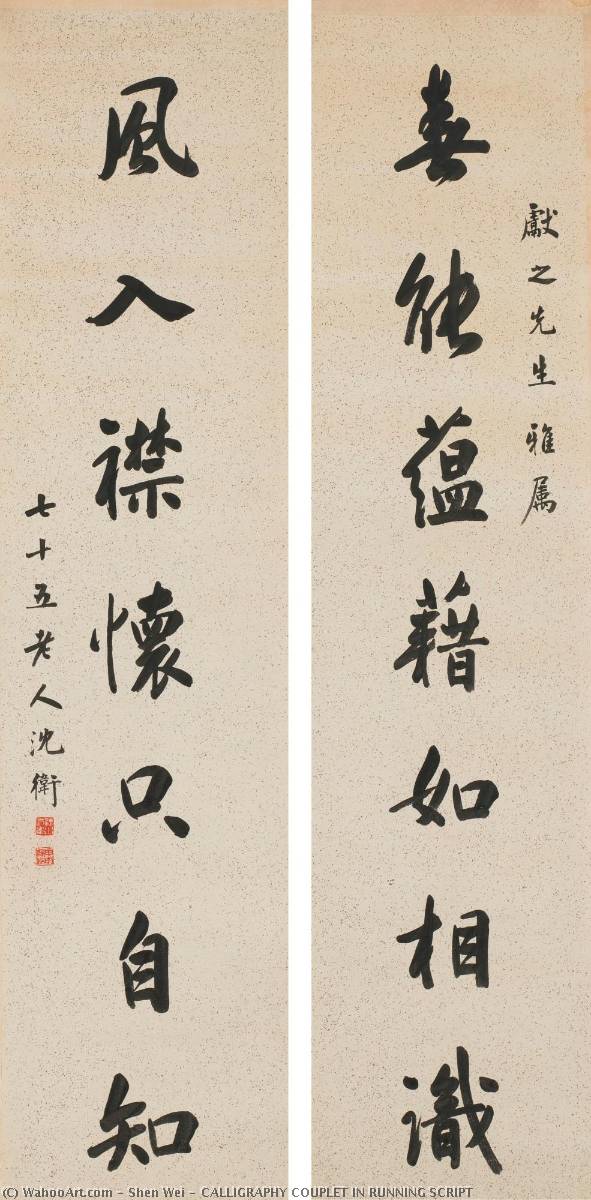 獻之先生雅属
春能蘊藉如相識
風入襟懷只自知
七十五老人沈衛
(C) WahooArt.com - Shen Wei - CALLIGRAPHY COUPLET IN RUNNING SCRIPT